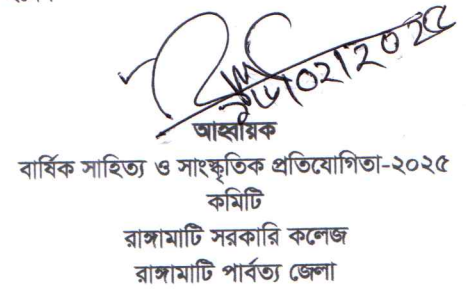 আহ্বায়ক
বার্ষিক সাহিত্য ও সাংস্কৃতিক প্রতিযোগিতা-২০২৫
কমিটি
রাঙ্গামাটি সরকারি কলেজ
রাঙ্গামাটি পার্বত্য জেলা